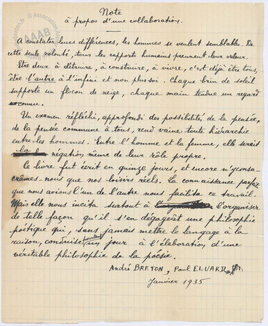 Note
à propos d'une collaboration.
A constater leurs différences, les hommes se veulent semblables. De
cette seule volonté, tous les rapports humains prennent leur valeur.
Etre deux à détruire, à construire, à vivre, c'est déjà être tous,
être l'autre à l'infini et non plus soi. Chaque brin de soleil
supporte un flocon de neige, chaque main tient un regard
connue.
Un examen réfléchi, approfondi des possibilités de la pensée,
de la pensée commune à tous, rend vaine toute hiérarchie
entre les hommes. Entre l'homme et la femme, elle serait
négation même de leur rôle propre.
Le livre fut écrit en quinze jours, et encore n'y consa-
crâmes-nous que nos loisirs réels. La connaissance parfaite
que nous avions l'un de l'autre nous facilita ce travail.
Mais elle nous incita surtout à l'organiser
de telle façon qu'il s'en dégageât une philosophie
poétique qui, sans jamais mettre le langage à la
raison, conduise un jour à l'élaboration d'une
véritable philosophie de la poésie.
André BRETON, Paul ELUARD
Janvier 1935